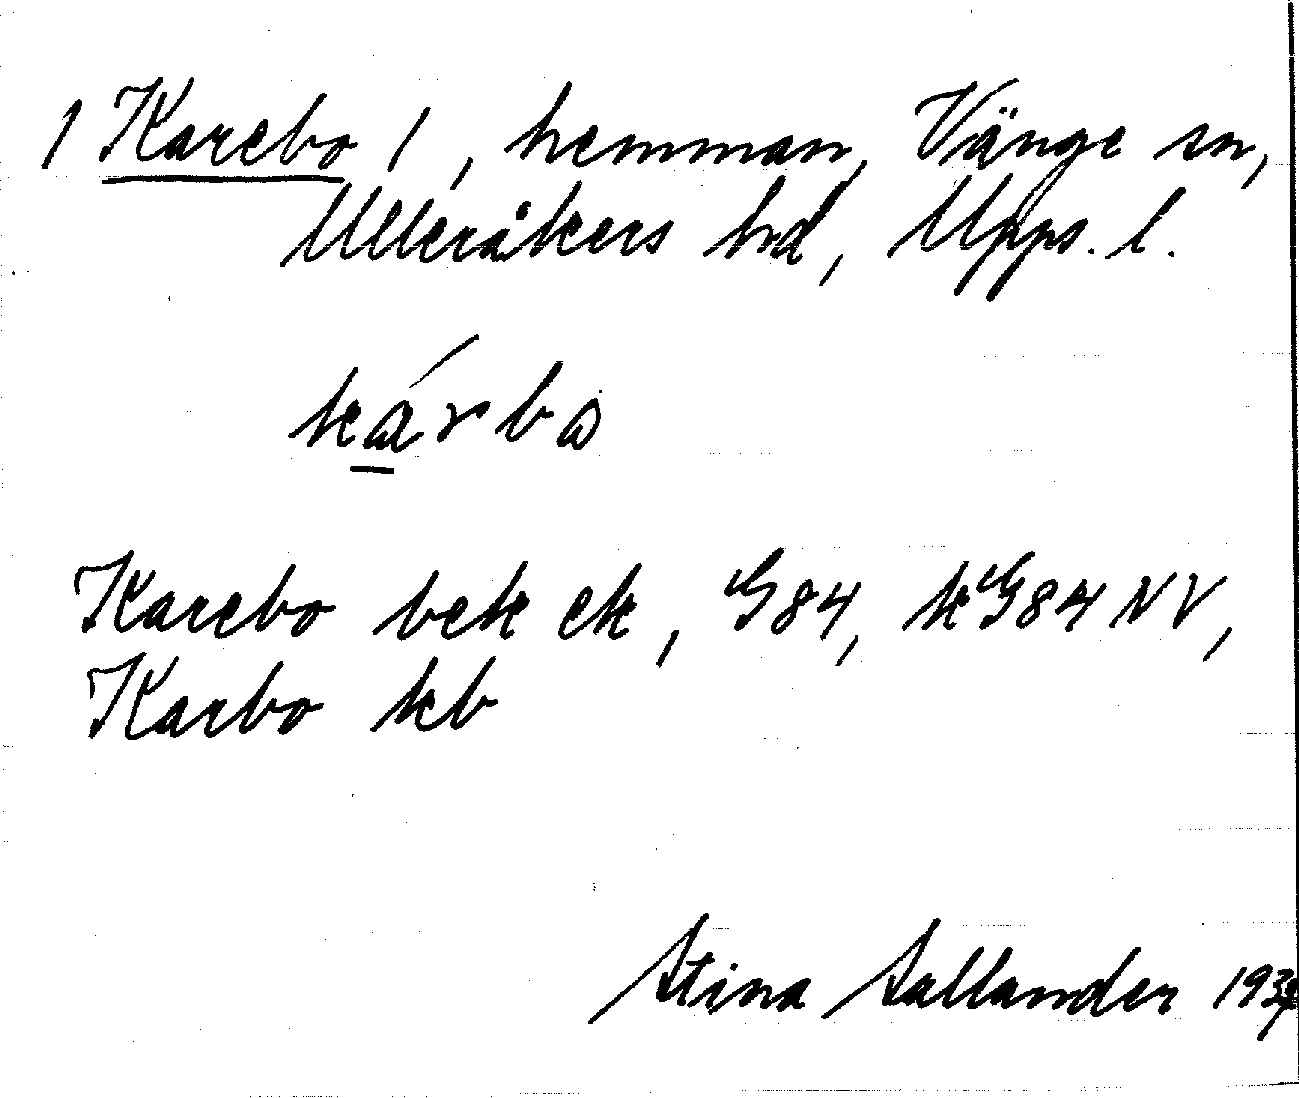 1 Karebo 1, hemman, Vänge sn,
Ulleråkers hd, Upps. l.
kárbo
Karebo bek ek, G84, kG84NV,
Karbo kb
Stina Sallander